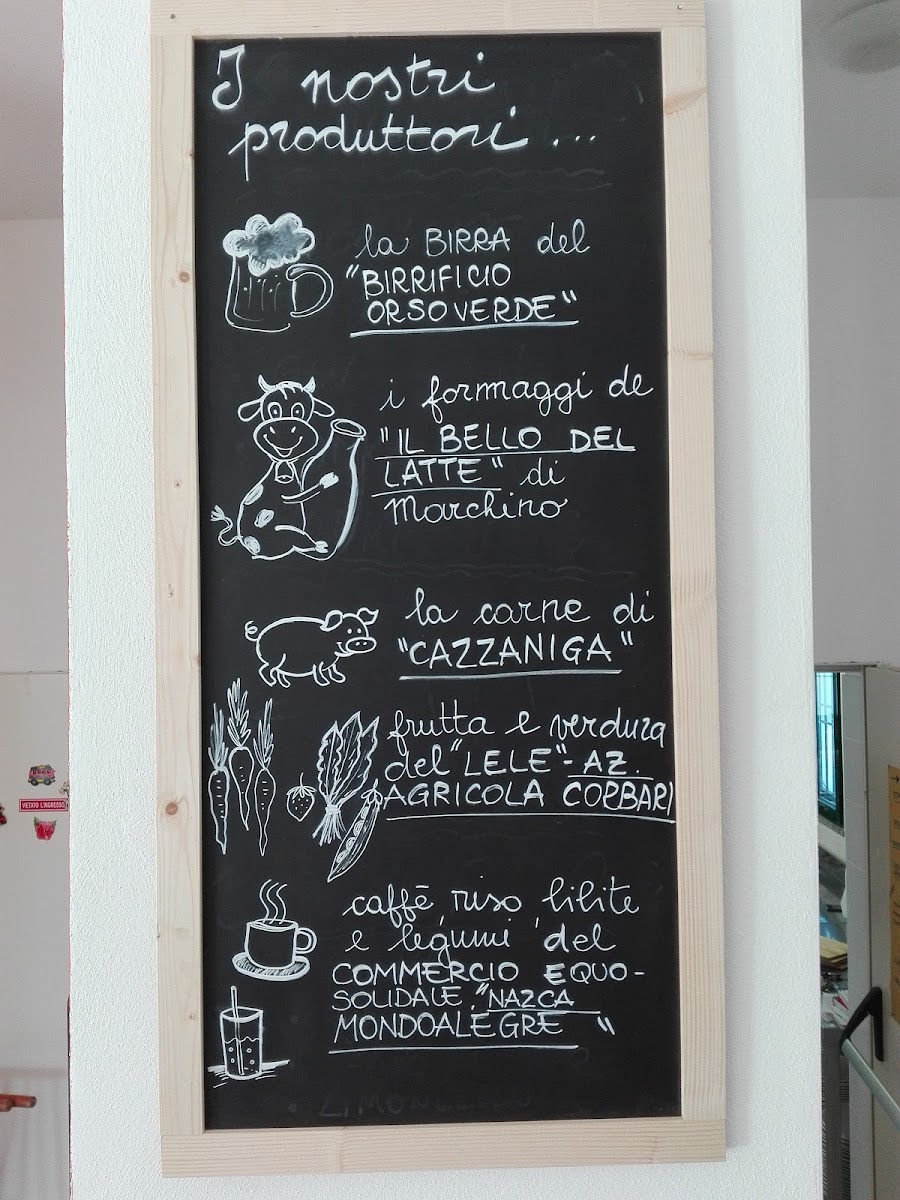 I nostri
produttori...
la BIRRA del
"BIRRIFICIO
ORSOVERDE"
i formaggi de
"IL BELLO DEL
LATTE" di
Marchino
la carne di
"CAZZANIGA"
frutta e verdura
del "LELE" - AZ.
AGRICOLA CORBARI
caffè, riso, bibite
e legumi del
COMMERCIO EQUO-
SOLIDALE "NAZCA
MONDOALEGRE"
VIETATO L'INGRESSO